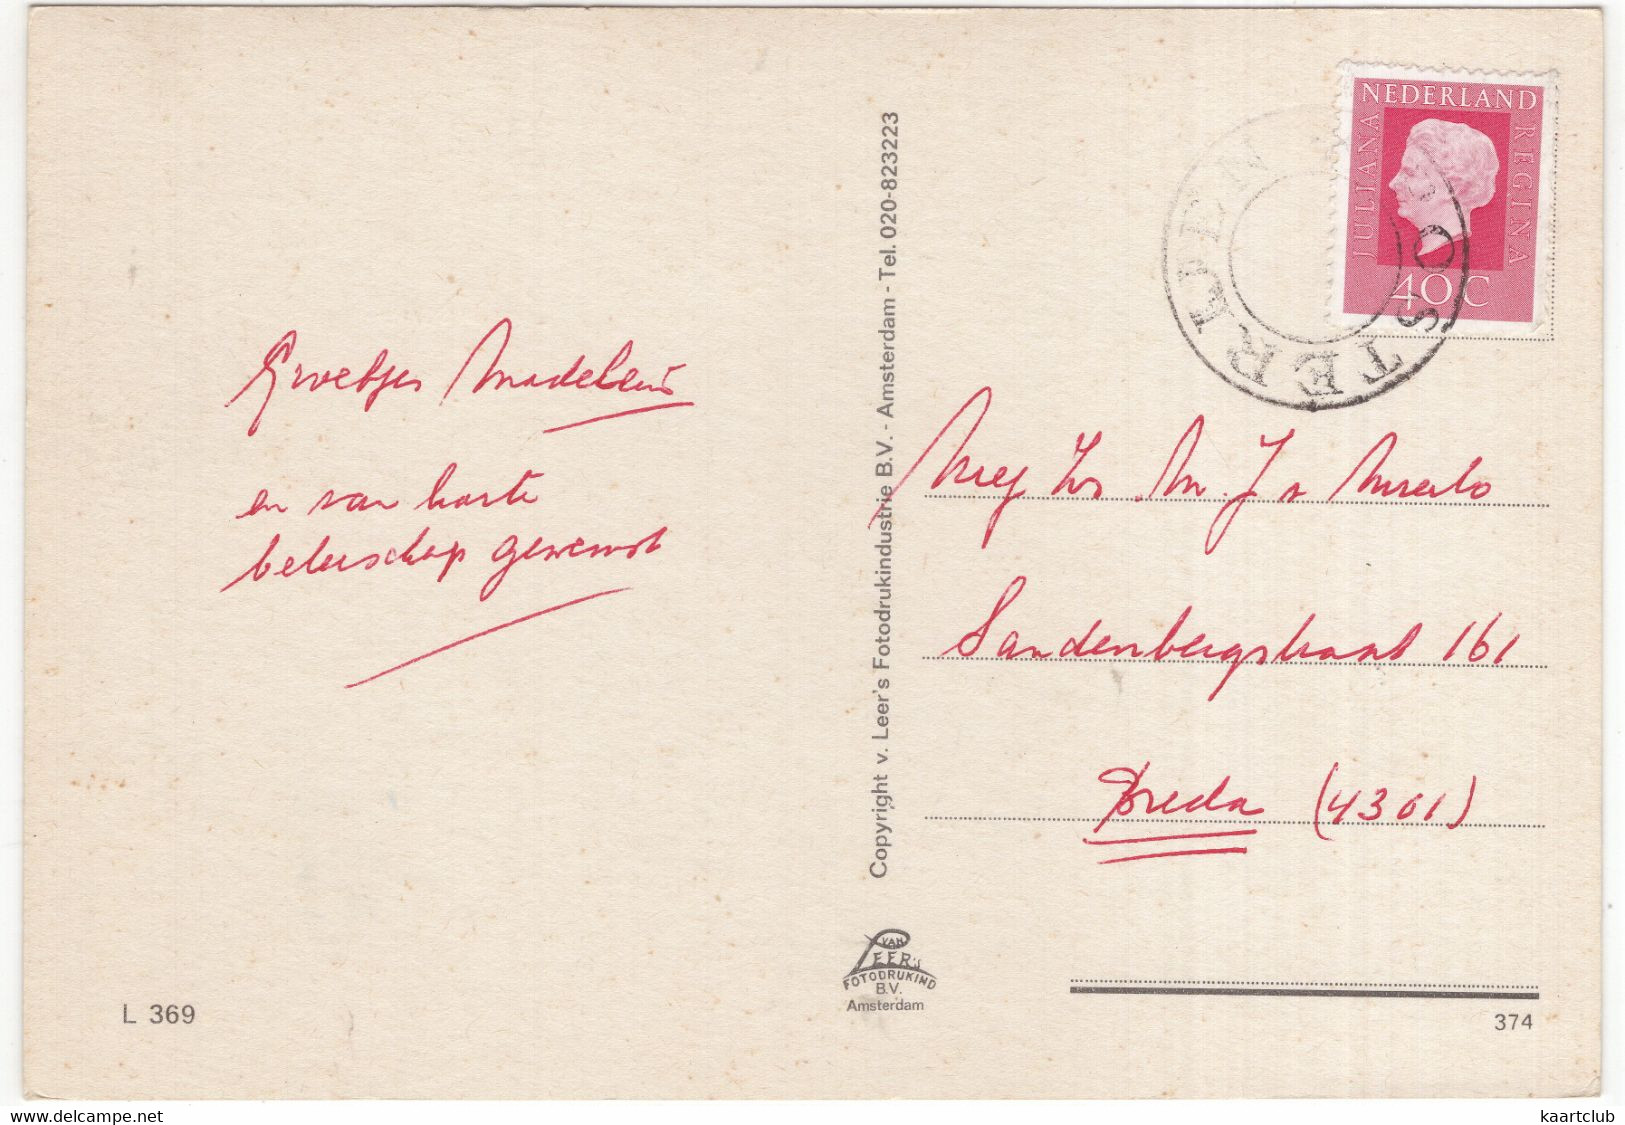 Groetjes Madelein
en van harte
beterschap gewenst
Copyright v. Leer's Fotodrukindustrie B.V. - Amsterdam - Tel. 020-823223
NEDERLAND
JULIANA
REGINA
40 C
OOSTEREDEN
Mej M. J. v Merlo
Sandenbergstraat 161
Breda (4301)
VAN
LEER'S
FOTODRUKIND
B.V.
Amsterdam
L 369
374
www.delcampe.net
kaartclub